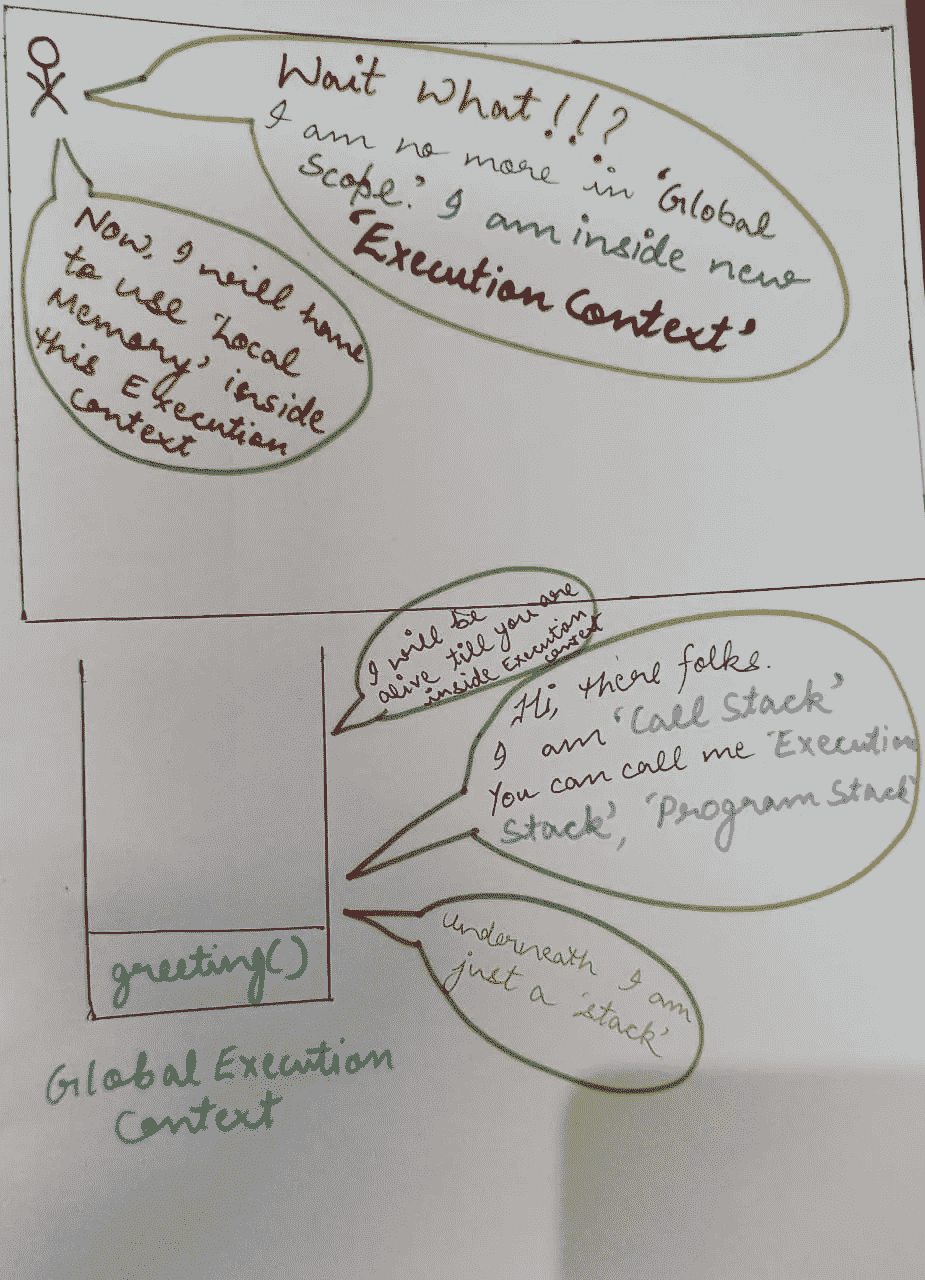 Wait What!!?
I am no more in 'Global
Scope.' I am inside new
'Execution Context'
Now, I will have
to use 'Local
Memory' inside
this Execution
context
I will be
alive till you are
inside Execution
context
Hi, there folks.
I am 'Call Stack'
You can call me 'Execution
Stack', 'Program Stack'
Underneath I am
just a 'stack'
greeting()
Global Execution
Context